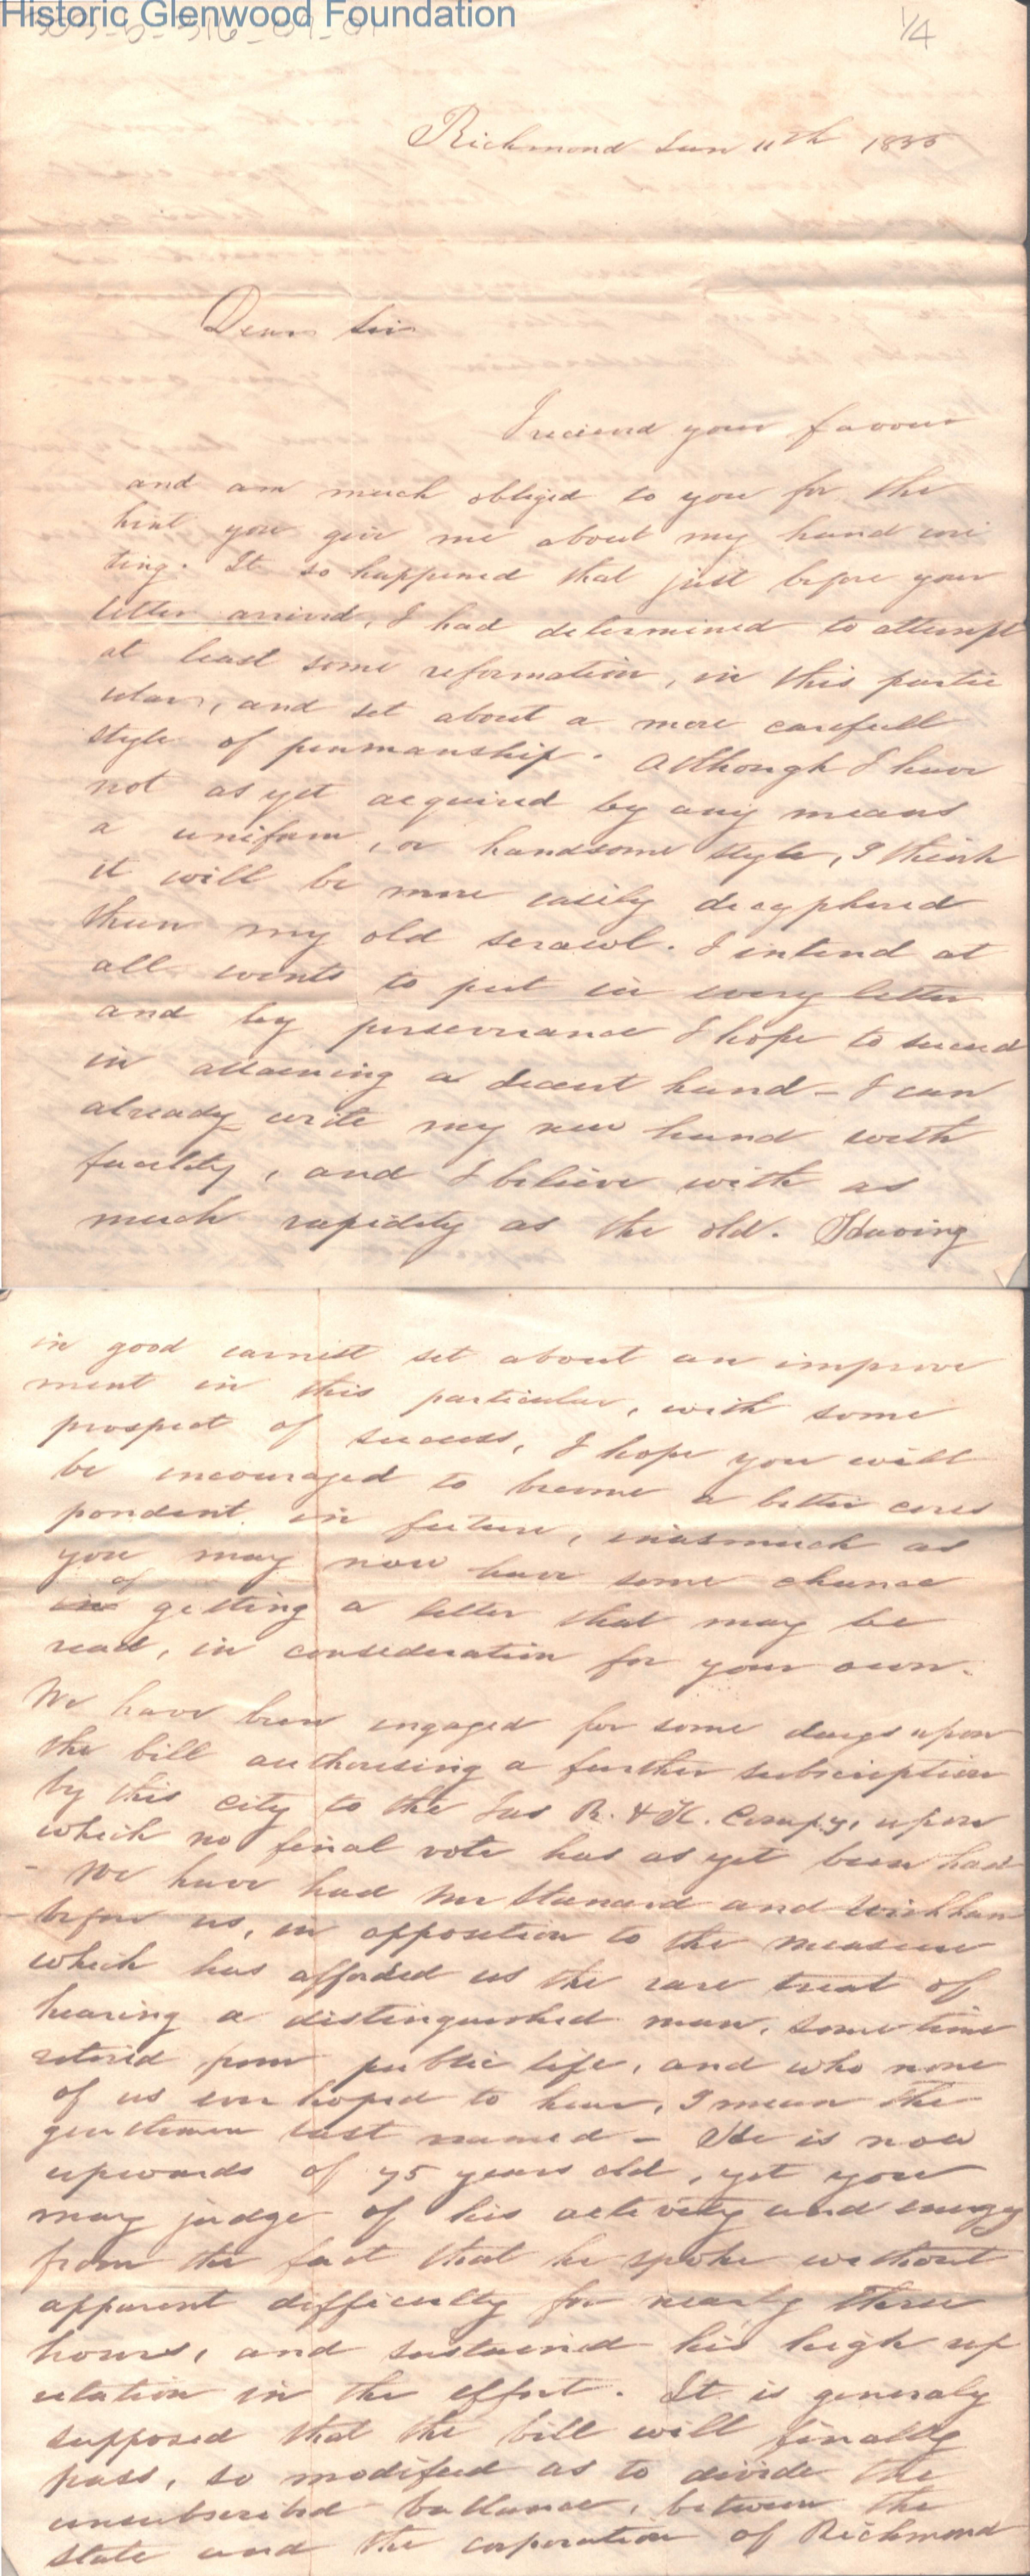 Historic Glenwood Foundation
1/4
Richmond Jan 11th 1835
Dear Sir
I recieved your favour
and am much obliged to you for the
hint you give me about my hand wri
ting. It so happened that just before your
letter arrived, I had determined to attempt
at least some reformation, in this partic
ular, and set about a more carefull
style of penmanship. Although I have
not as yet acquired by any means
a uniform, or handsome style, I think
it will be more easily decyphered
than my old scrawl. I intend at
all events to put in every letter
and by perseverance I hope to succeed
in attaining a decent hand - I can
already write my new hand with
facility, and I believe with as
much rapidity as the old. Having
in good earnest set about an improve
ment in this particular, with some
prospect of success, I hope you will
be encouraged to become a better corres
pondent in future, inasmuch as
you may now have some chance
of
in getting a letter that may be
read, in consideration for your own.
We have been engaged for some days upon
the bill authorising a further subscription
by this city to the Jas R. & K. Compy, upon
which no final vote has as yet been had
- We have had Mr Stanard and Wickham
before us, in opposition to the measure
which has afforded us the rare treat of
hearing a distinguished man, some time
retired from public life, and who none
of us ever hoped to hear, I mean the
gentleman last named - He is now
upwards of 75 years old, yet you
may judge of his activity and energy
from the fact that he spoke without
apparent difficulty for nearly three
hours, and sustained his high rep
utation in the effort. It is generaly
supposed that the bill will finally
pass, so modified as to divide the
unsubscribed ballance, between the
state and the corporation of Richmond